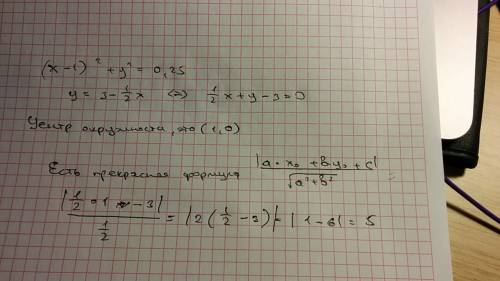 (x-1)² + y² = 0,25
y = 3 - 1/2 x <=> 1/2 x + y - 3 = 0
Центр окружности, это (1,0)
Есть прекрасная формула |a·x₀ + by₀ + c| / √(a²+b²) =
|1/2 · 1 - 3| / (1/2) = |2(1/2 - 3)| = |1-6| = 5